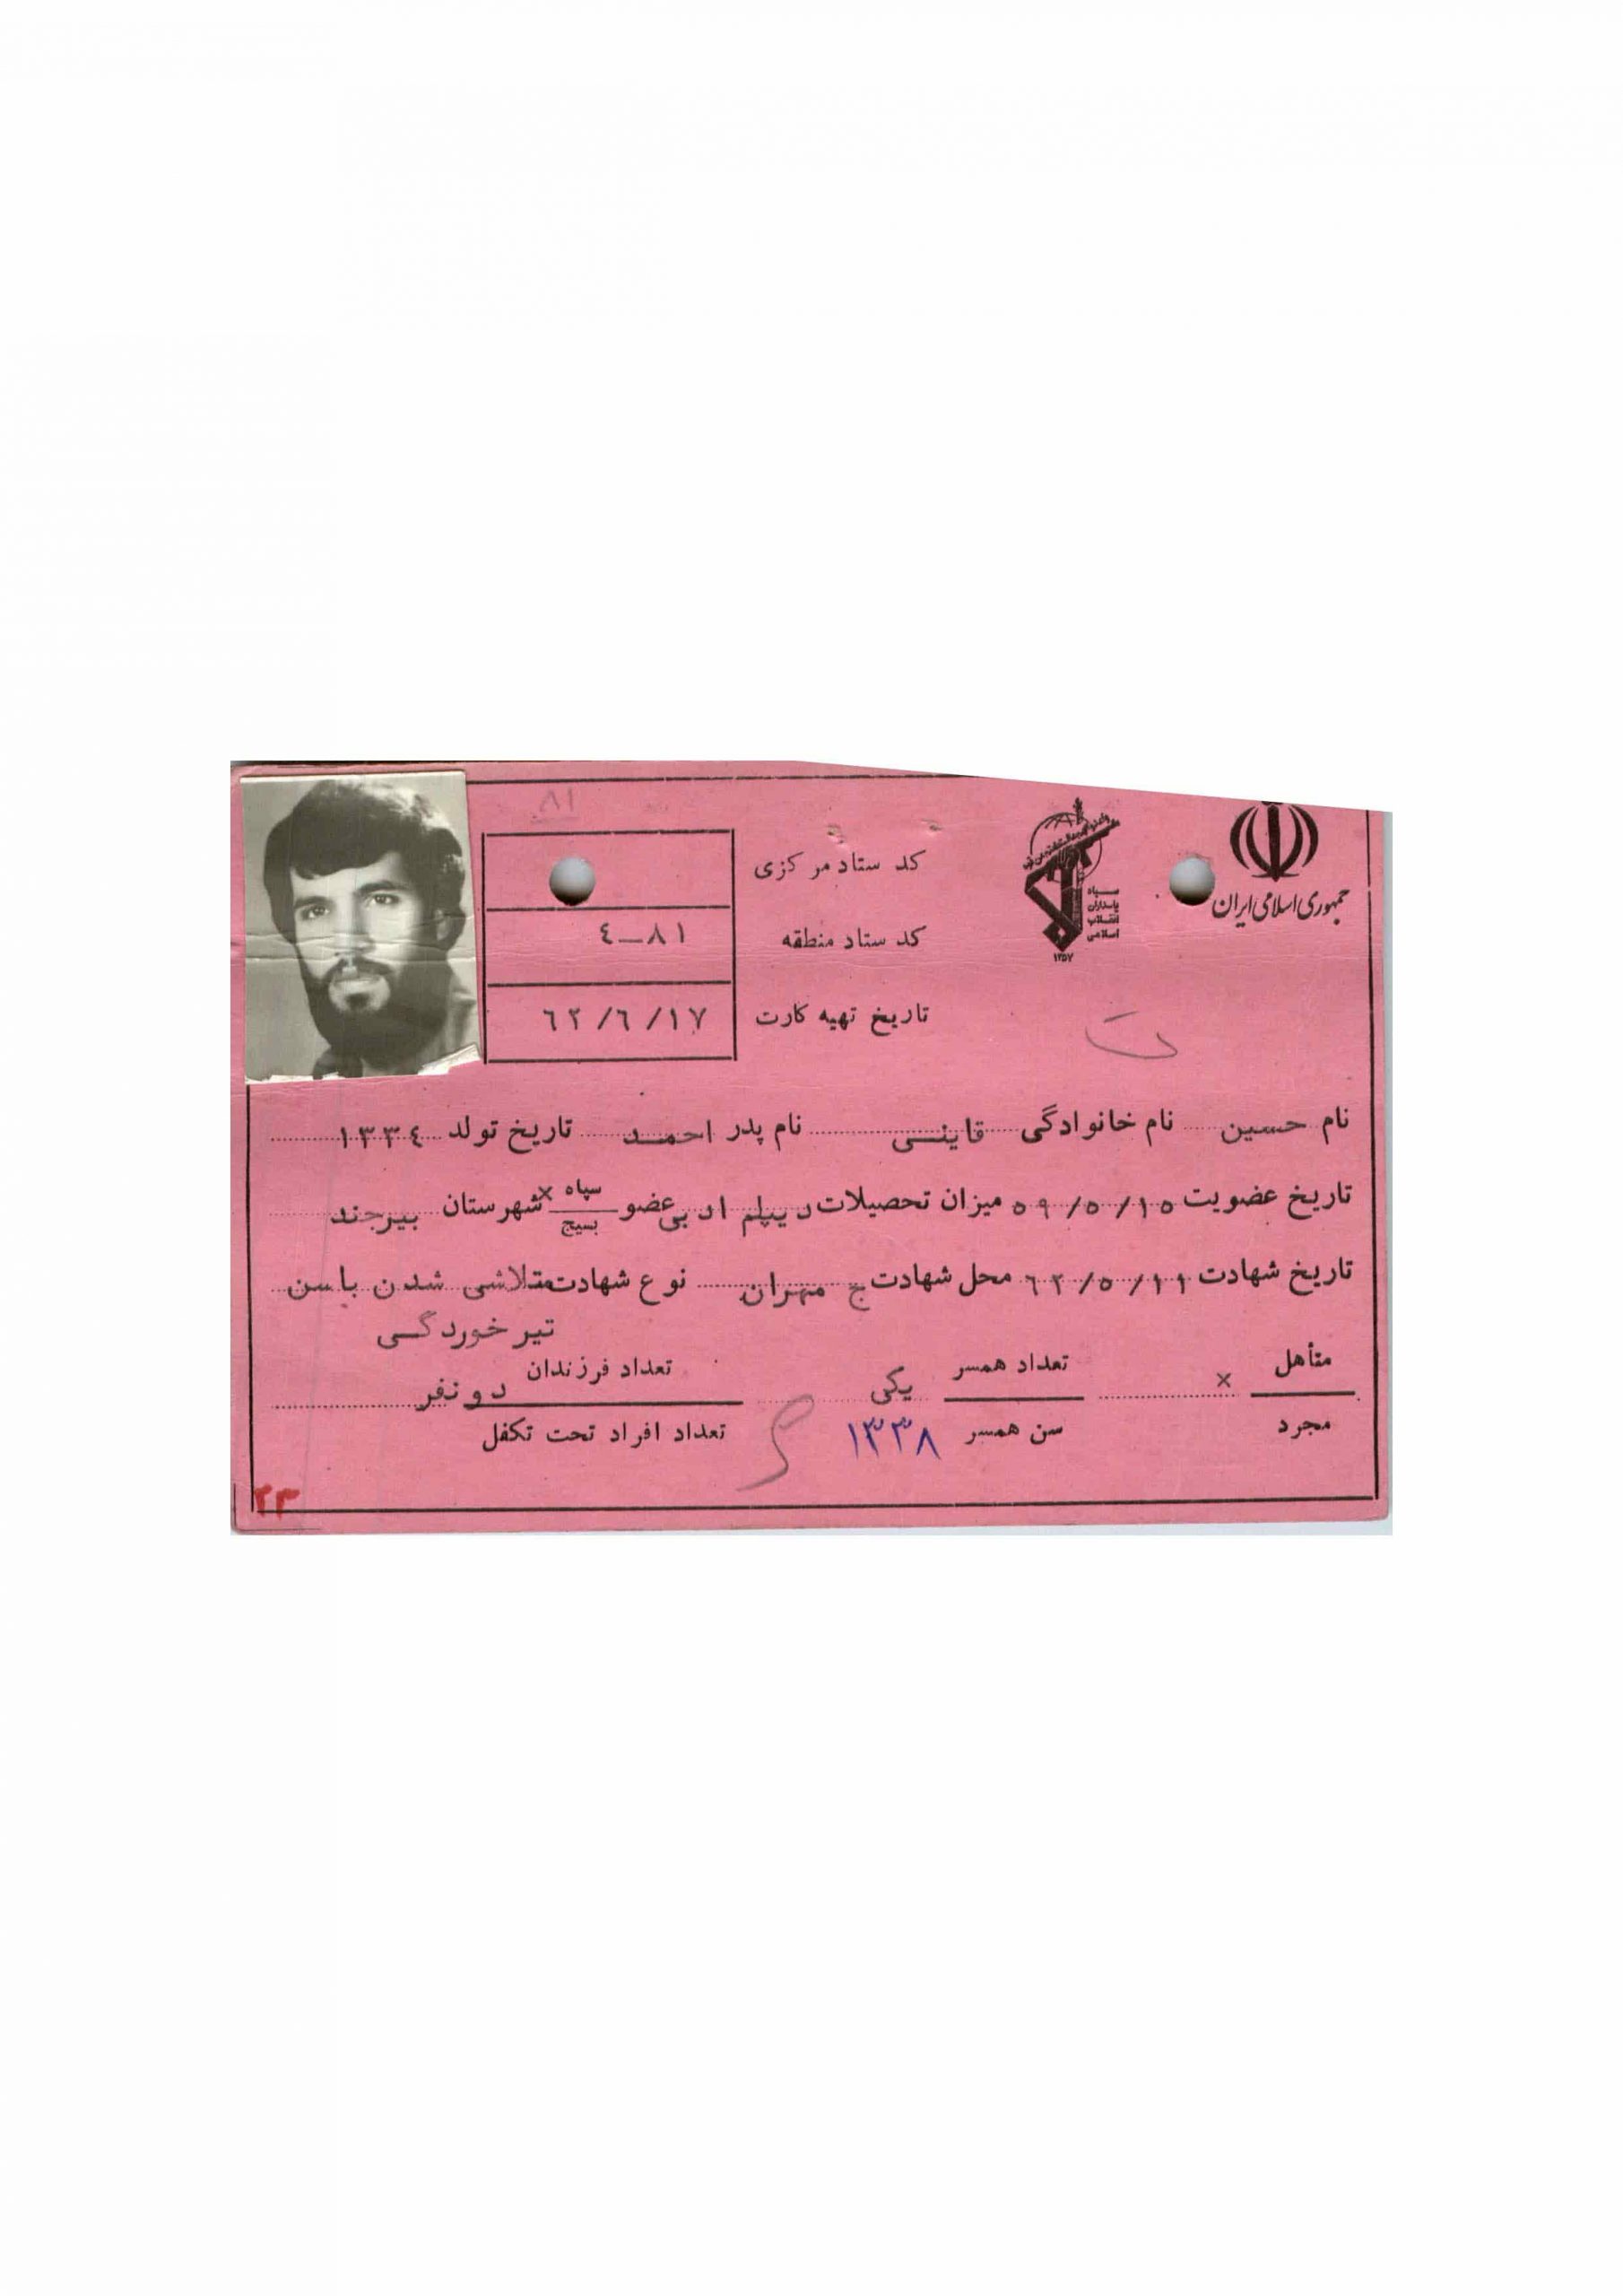 جمهوری اسلامی ایران
سپاه
پاسداران
انقلاب
اسلامی
۱۳۵۷
۸۱
کد ستاد مرکزی
کد ستاد منطقه ٤-٨١
تاریخ تهیه کارت ٦٢/٦/١٧
ت
نام حسین نام خانوادگی قاینی نام پدر احمد تاریخ تولد ١٣٣٤
تاریخ عضویت ٥٩/٥/١٥ میزان تحصیلات دیپلم ادبی عضو سپاه × بسیج شهرستان بیرجند
تاریخ شهادت ٦٢/٥/١١ محل شهادت ج مهران نوع شهادت متلاشی شدن باسن
تیر خوردگی
متأهل × تعداد همسر یکی تعداد فرزندان دو نفر
مجرد سن همسر ۱۳۳۸ تعداد افراد تحت تکفل
۲۳